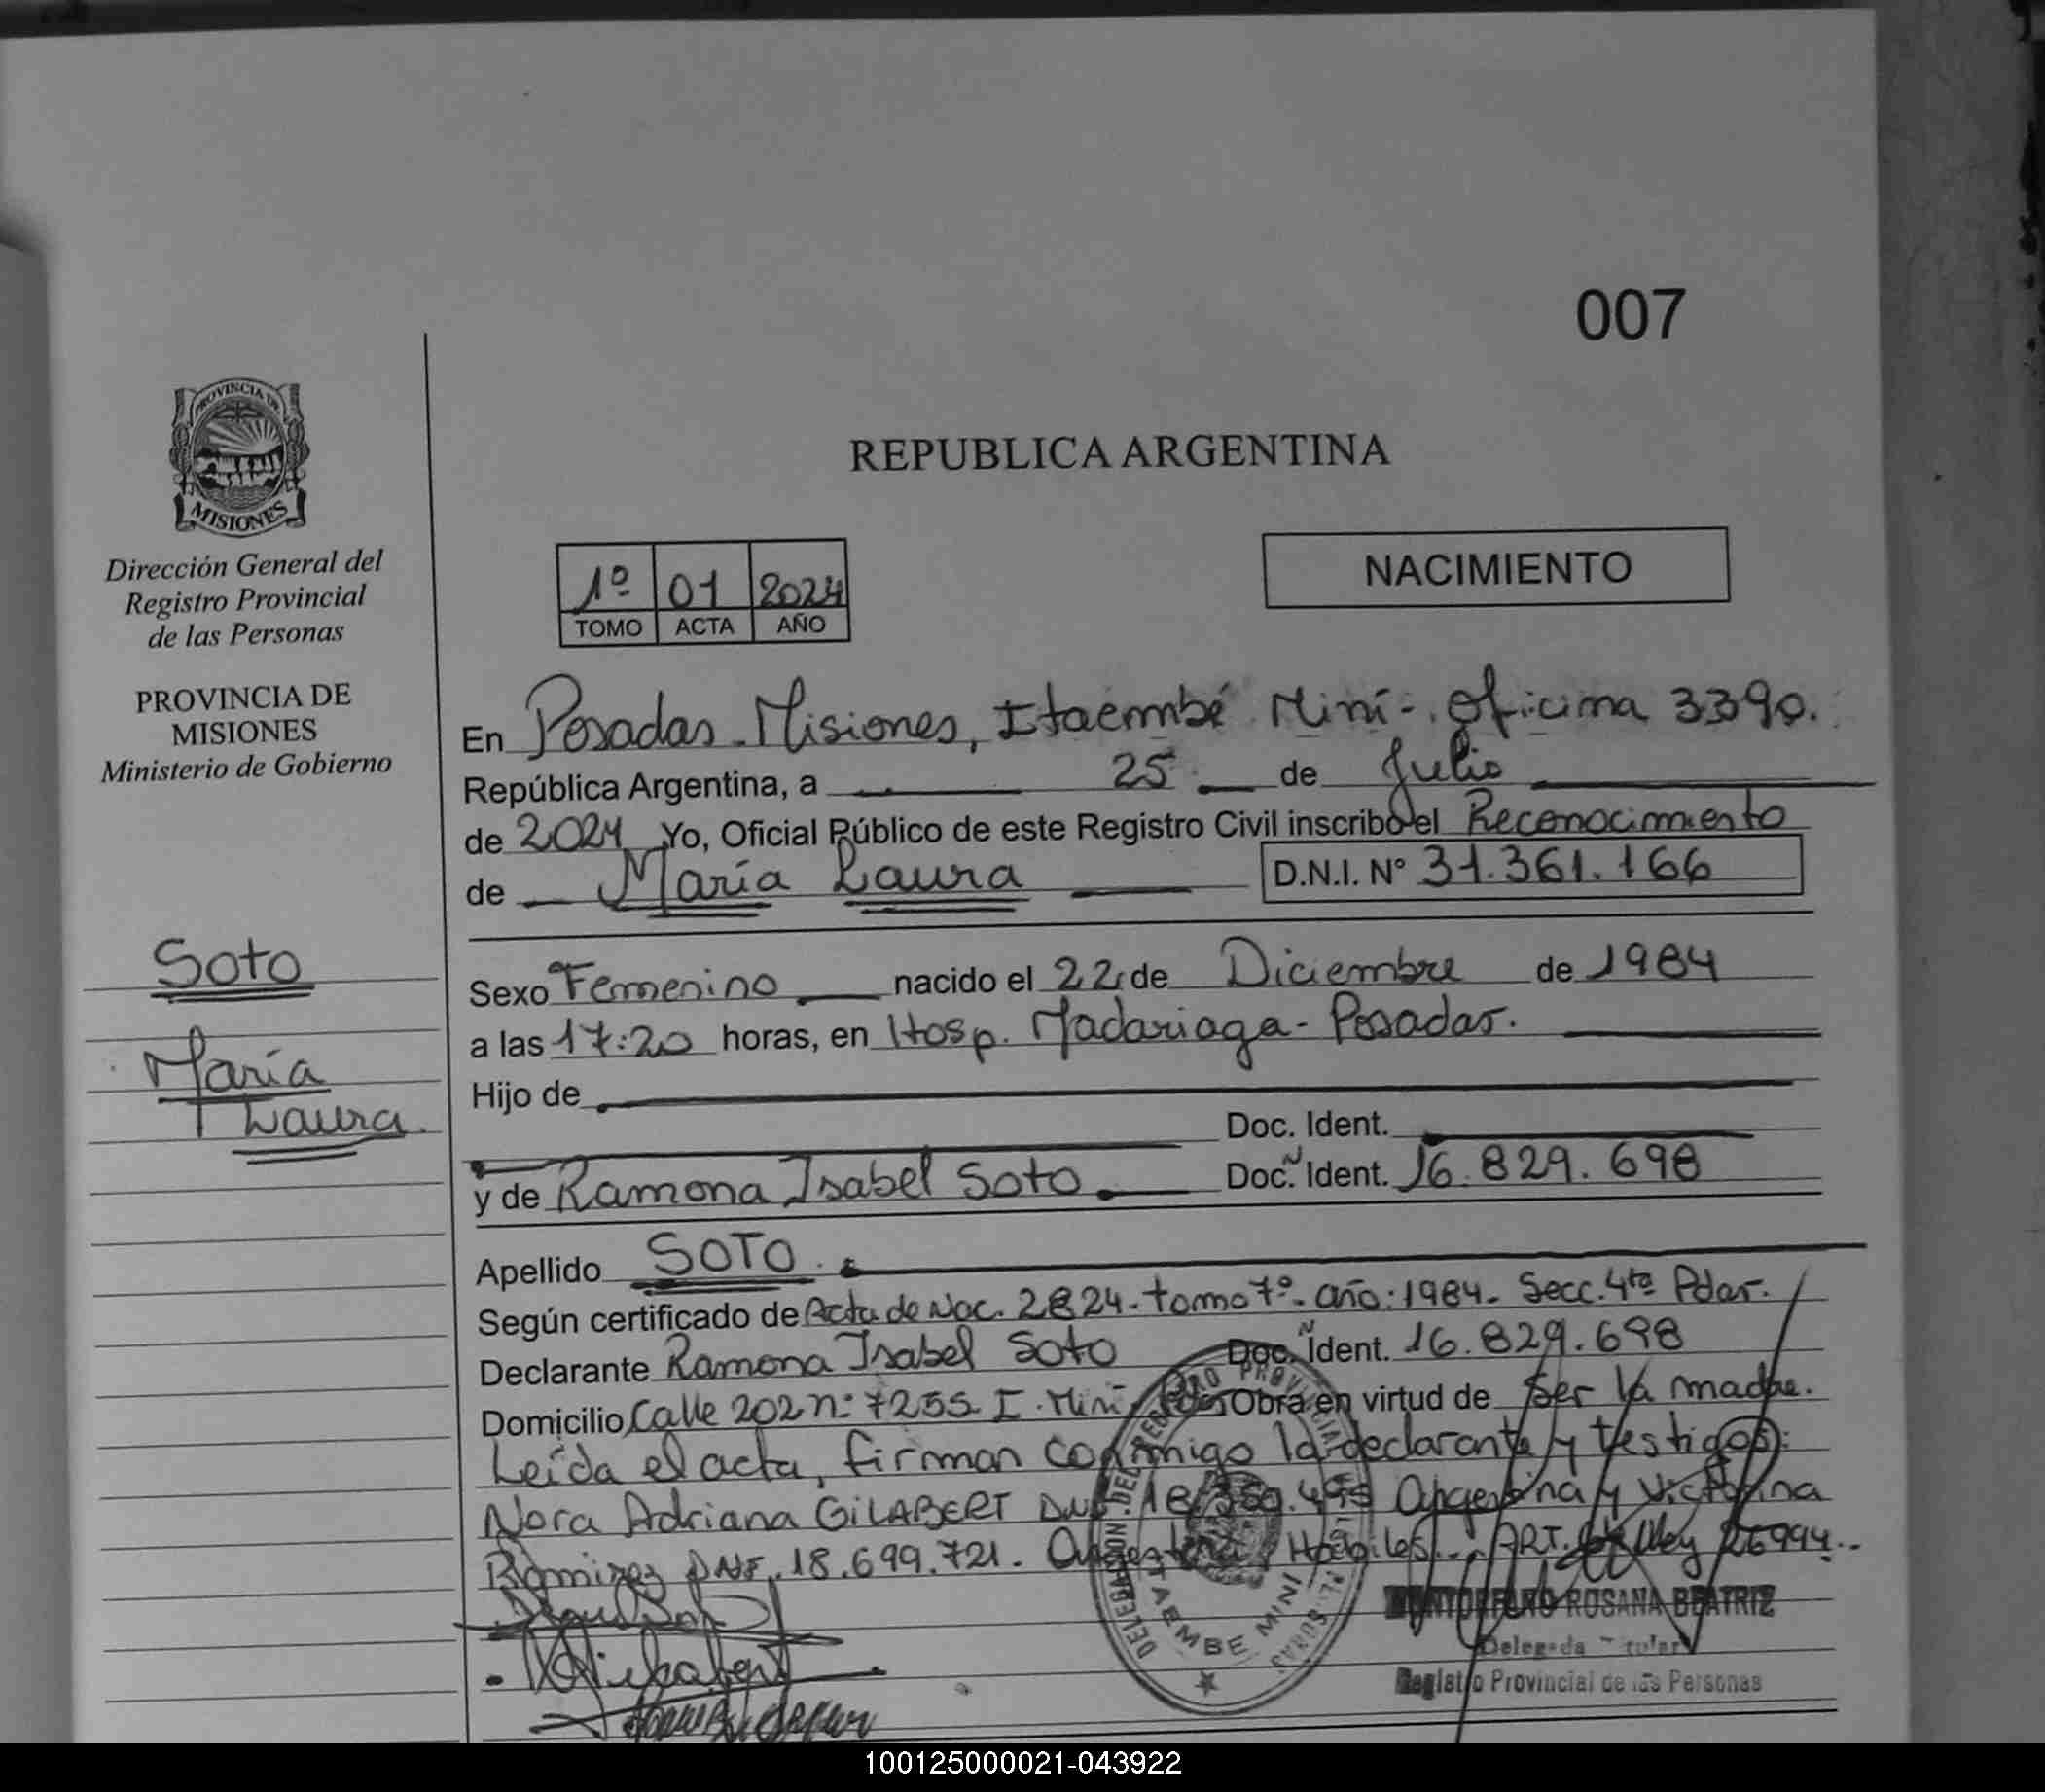 007
PROVINCIA DE
MISIONES
Dirección General del
Registro Provincial
de las Personas
PROVINCIA DE
MISIONES
Ministerio de Gobierno
Soto
María
Laura.
REPUBLICA ARGENTINA
1º 01 2024
TOMO ACTA AÑO
NACIMIENTO
En Posadas Misiones, Itaembé Miní-. Oficina 3390.
República Argentina, a 25 de Julio
de 2024 Yo, Oficial Público de este Registro Civil inscribo el Reconocimiento
de María Laura D.N.I. Nº 31.361.166
Sexo Femenino nacido el 22 de Diciembre de 1984
a las 17:20 horas, en Hosp. Madariaga - Posadas.
Hijo de
Doc. Ident.
y de Ramona Isabel Soto Doc. Ident. 16.829.698
Apellido SOTO.
Según certificado de Acta de Nac. 2824 - tomo 7º - año: 1984 - Secc. 4ta Pdas.
Declarante Ramona Isabel Soto Doc. Ident. 16.829.698
Domicilio Calle 202 nº 7255 I. Miní Obra en virtud de ser la madre.
Leída el acta, firman conmigo la declarante y testigos:
Nora Adriana GILABERT DNI Argentina y Victorina
Ramirez DNI. 18.699.721. Argentina Hábiles. ART. Ley 26994.
ROSANA BEATRIZ
Delegada Titular
Registro Provincial de las Personas
ITAEMBE MINI
100125000021-043922